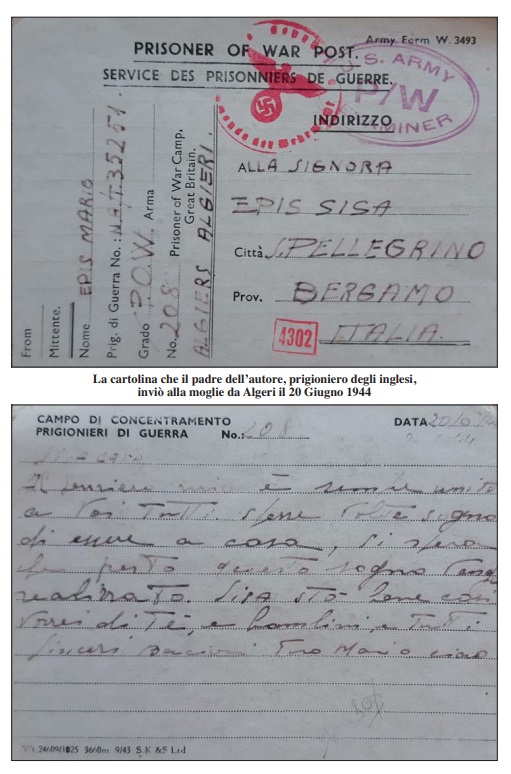 Army Form W. 3493
PRISONER OF WAR POST.
SERVICE DES PRISONNIERS DE GUERRE.
U.S. ARMY
P/W
EXAMINER
INDIRIZZO
ALLA SIGNORA
EPIS SISA
Città S. PELLEGRINO
Prov. BERGAMO
ITALIA.
4302
From
Mittente.
Nome EPIS MARIO
Prig. di Guerra No.: N.A.T. 35251.
Grado P.O.W. Arma
No. 208 Prisoner of War Camp,
Great Britain.
ALGIERS ALGIERI.
La cartolina che il padre dell'autore, prigioniero degli inglesi,
inviò alla moglie da Algeri il 20 Giugno 1944
CAMPO DI CONCENTRAMENTO
PRIGIONIERI DI GUERRA No.: 208
DATA 20/6/
Sisa cara
Il pensiero mio è sempre unito
a Voi Tutti. spesse Volte sogno
di essere a casa, si spera
che presto questo sogno
realizzato. Sisa stò bene così
Vorrei di Tè, e bambini, e Tutti
Sinceri Bacioni Tuo Mario ciao
36/0m 9/43 S.K &S Ltd